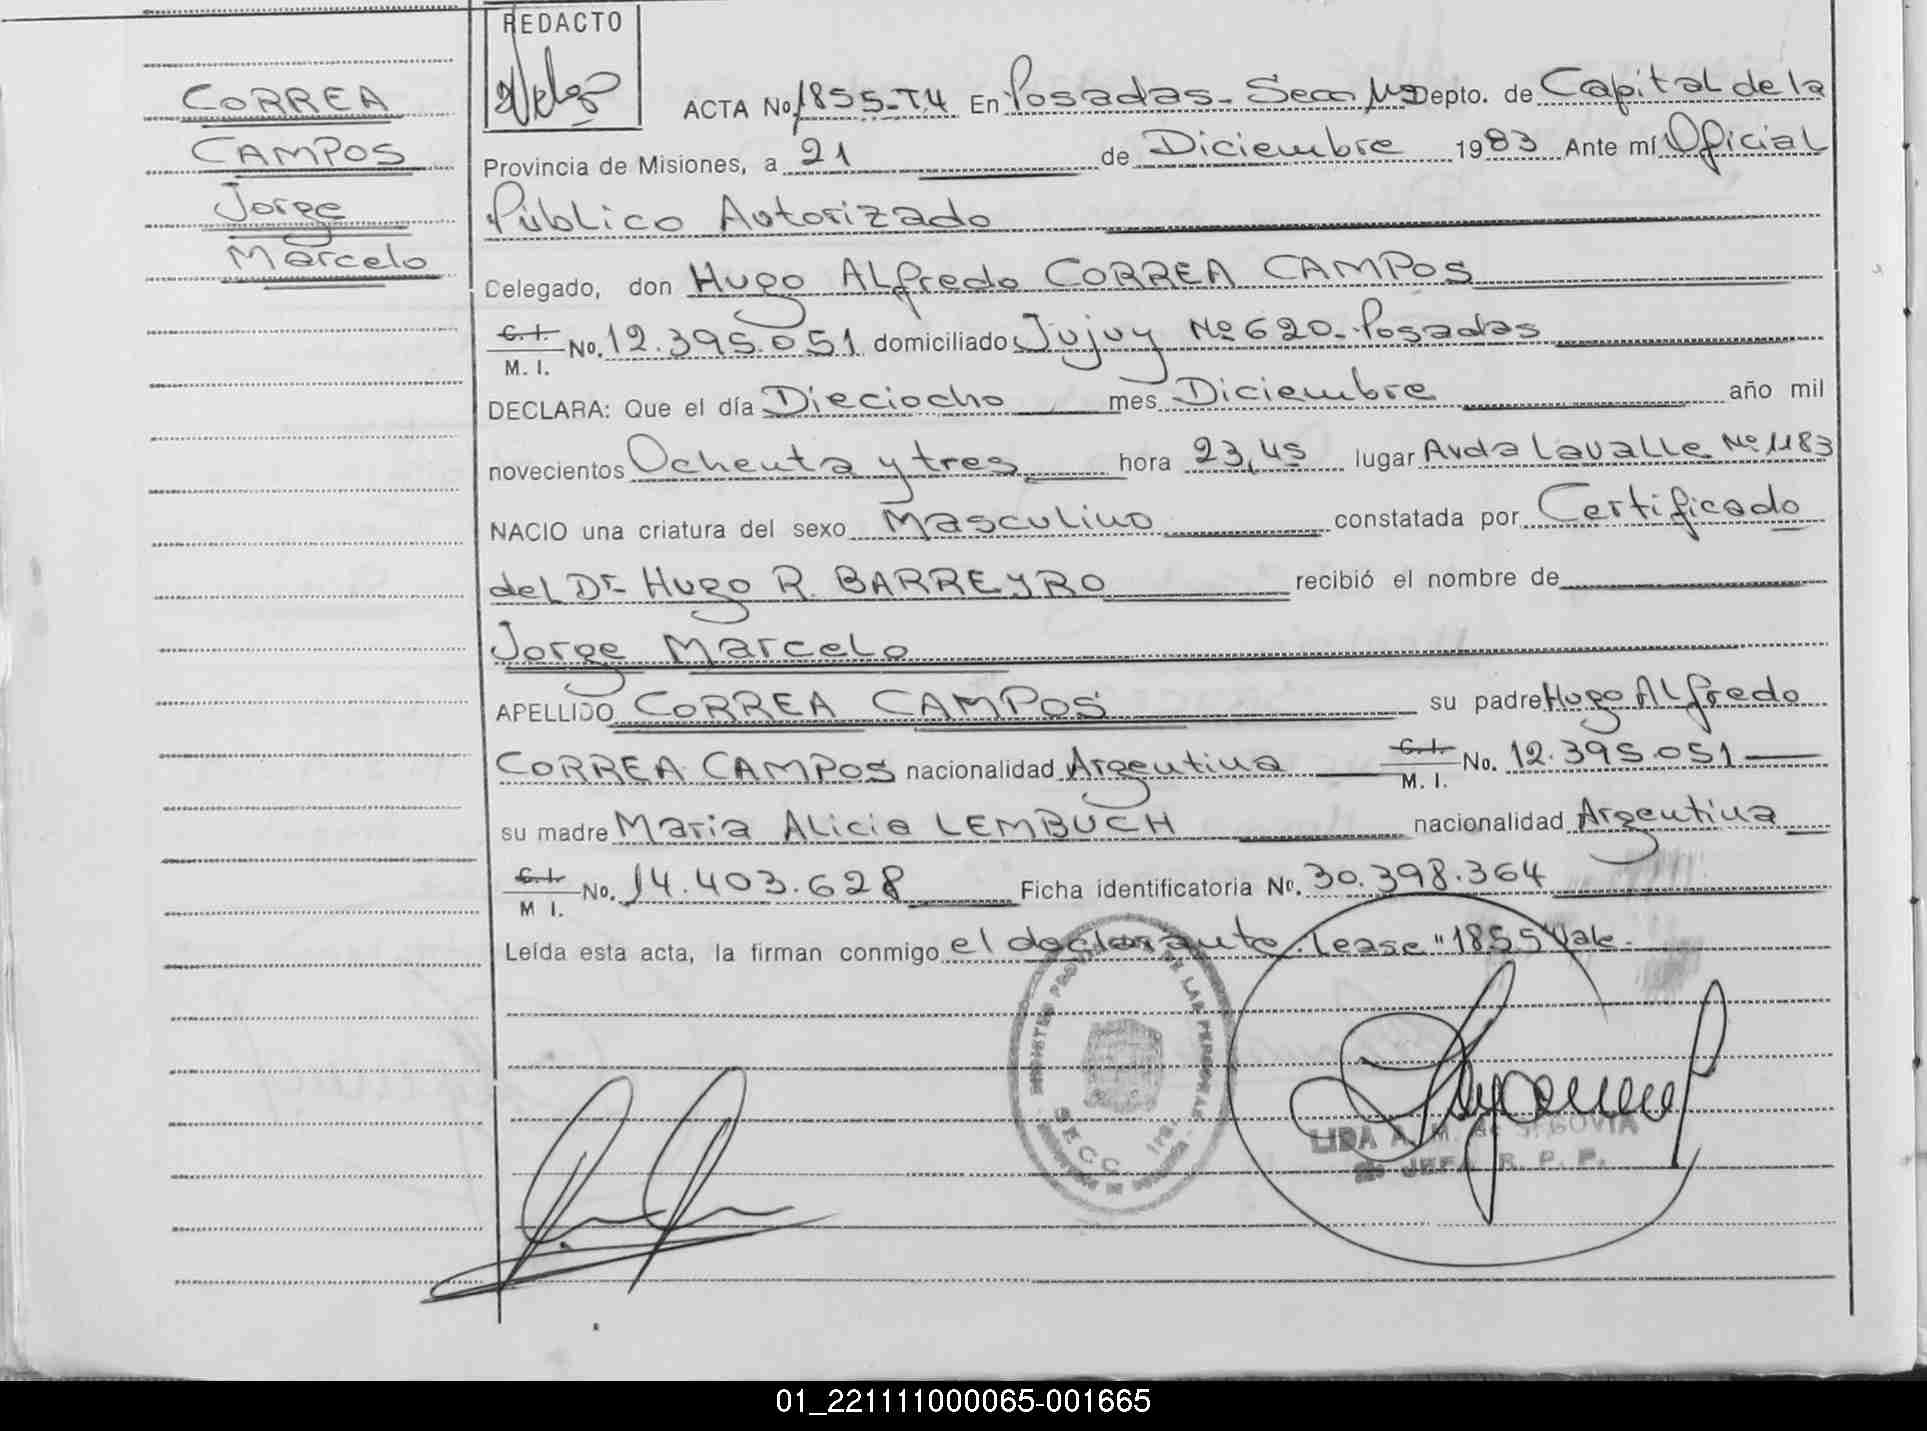 REDACTO
CORREA
CAMPOS
Jorge
Marcelo
ACTA No. 1855-T4 En Posadas- Secc Depto. de Capital de la
Provincia de Misiones, a 21 de Diciembre 1983 Ante mí Oficial
Público Autorizado
Celegado, don Hugo Alfredo CORREA CAMPOS
C. I. M. I. No. 12.395.051 domiciliado Jujuy Nº 620- Posadas
DECLARA: Que el día Dieciocho mes Diciembre año mil
novecientos Ochenta y tres hora 23,45 lugar Avda Lavalle Nº 1183
NACIO una criatura del sexo Masculino constatada por Certificado
del Dr Hugo R. BARREYRO recibió el nombre de
Jorge Marcelo
APELLIDO CORREA CAMPOS su padre Hugo Alfredo
CORREA CAMPOS nacionalidad Argentina C. I. M. I. No. 12.395.051
su madre Maria Alicia LEMBUCH nacionalidad Argentina
C. I. M I. No. 14.403.628 Ficha identificatoria Nº. 30.398.364
Leída esta acta, la firman conmigo el declarante. Lease "1855" Vale.
DE LAS PERSONAS
SECC. 1ra.
LIDA A. M. de SEGOVIA
JEFA R. P. P.
01_221111000065-001665